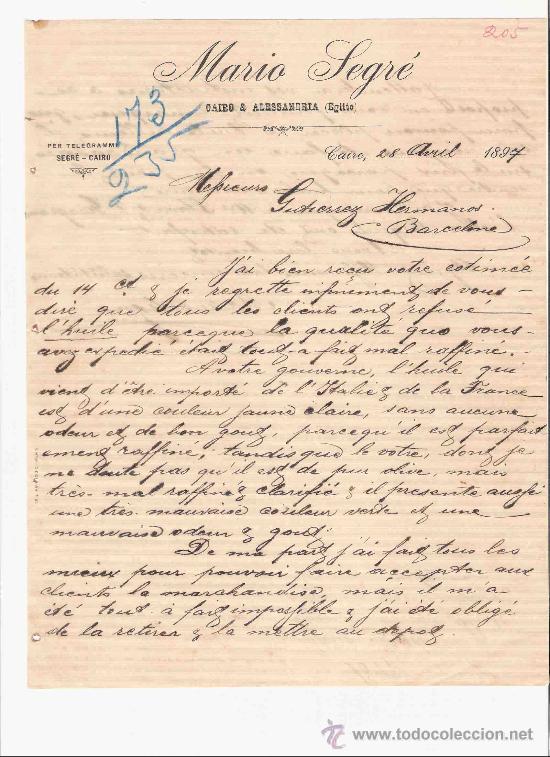 205
Mario Segré
CAIRO & ALESSANDRIA (Egitto)
173
235
PER TELEGRAMMI
SEGRÉ - CAIRO
Cairo, 28 Avril 1897
Messieurs
Gutierrez Hermanos.
Barcelone
J'ai bien reçu votre estimée
du 14 ct & je regrette infiniment de vous
dire que tous les clients ont refusé
l'huile parceque la qualité que vous
avez expedié était tout a fait mal raffiné.
A votre gouverne, l'huile qui
vient d'être importé de l'Italie & de la France
est d'une couleur jaune claire, sans aucune
odeur et de bon gout, parcequ'il est parfait
ement raffiné, tandis que le votre, dont je
ne doute pas qu'il est de pur olive, mais
très mal raffiné & clarifié & il presente aussi
une très mauvaise couleur verte et une
mauvaise odeur & gout.
De ma part j'ai fait tous les
mieux pour pouvoir faire accepter aux
clients la marchandise, mais il m'a
été tout à fait impossible & j'ai été obligé
de la retirer & la mettre au depot.
www.todocoleccion.net